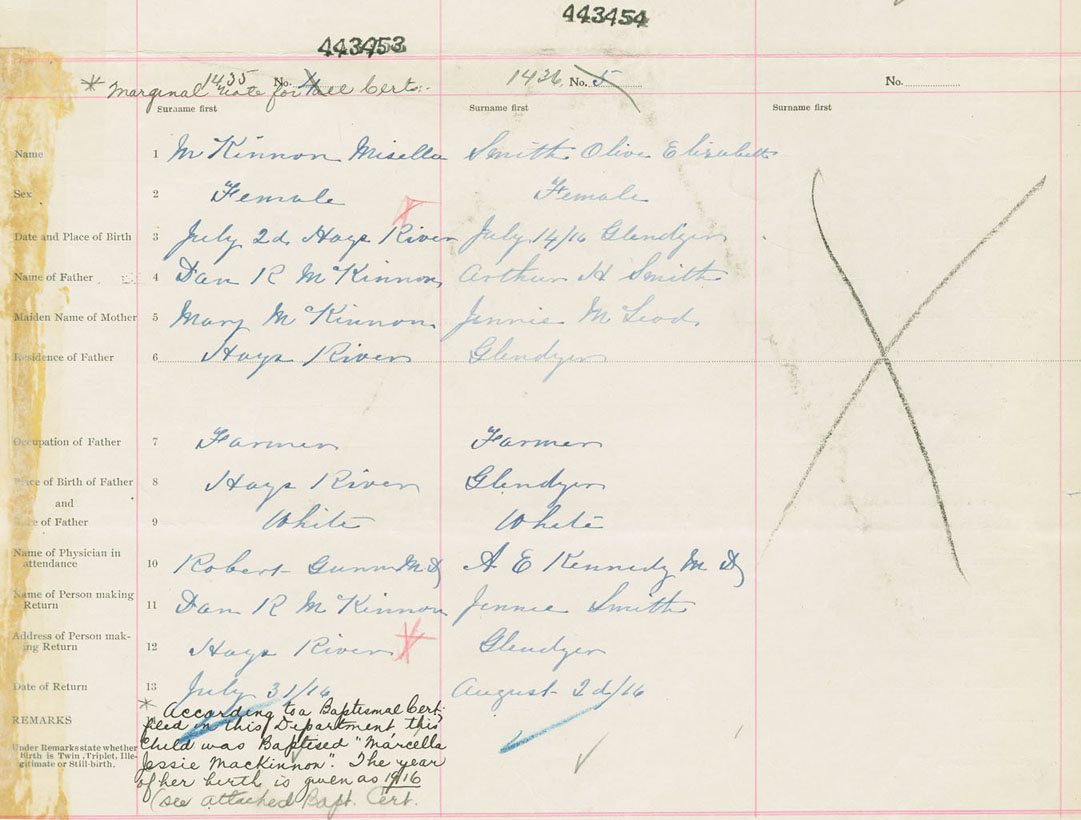 443453
443454
1435 No. 4
1436 No. 5
No.
* Marginal note for all Certs:-
Surname first
Surname first
Surname first
Name 1 McKinnon Misella Smith Olive Elizabeth
Sex 2 Female Female
Date and Place of Birth 3 July 2d Hays River July 14/16 Glendyer
Name of Father 4 Dan R McKinnon Arthur H Smith
Maiden Name of Mother 5 Mary McKinnon Jennie McLeod
Residence of Father 6 Hays River Glendyer
Occupation of Father 7 Farmer Farmer
Place of Birth of Father 8 Hays River Glendyer
and
of Father 9 White White
Name of Physician in
attendance 10 Robert Gunn MD A E Kennedy MD
Name of Person making
Return 11 Dan R McKinnon Jennie Smith
Address of Person mak-
ing Return 12 Hays River Glendyer
Date of Return 13 July 31/16 August 2d/16
REMARKS
Under Remarks state whether
Birth is Twin, Triplet, Ille-
gitimate or Still-birth.
* According to a Baptismal Cert.
filed in this Department, this
child was Baptised "Marcella
Jessie MacKinnon". The year
of her birth is given as 1916
(see attached Bapt. Cert.